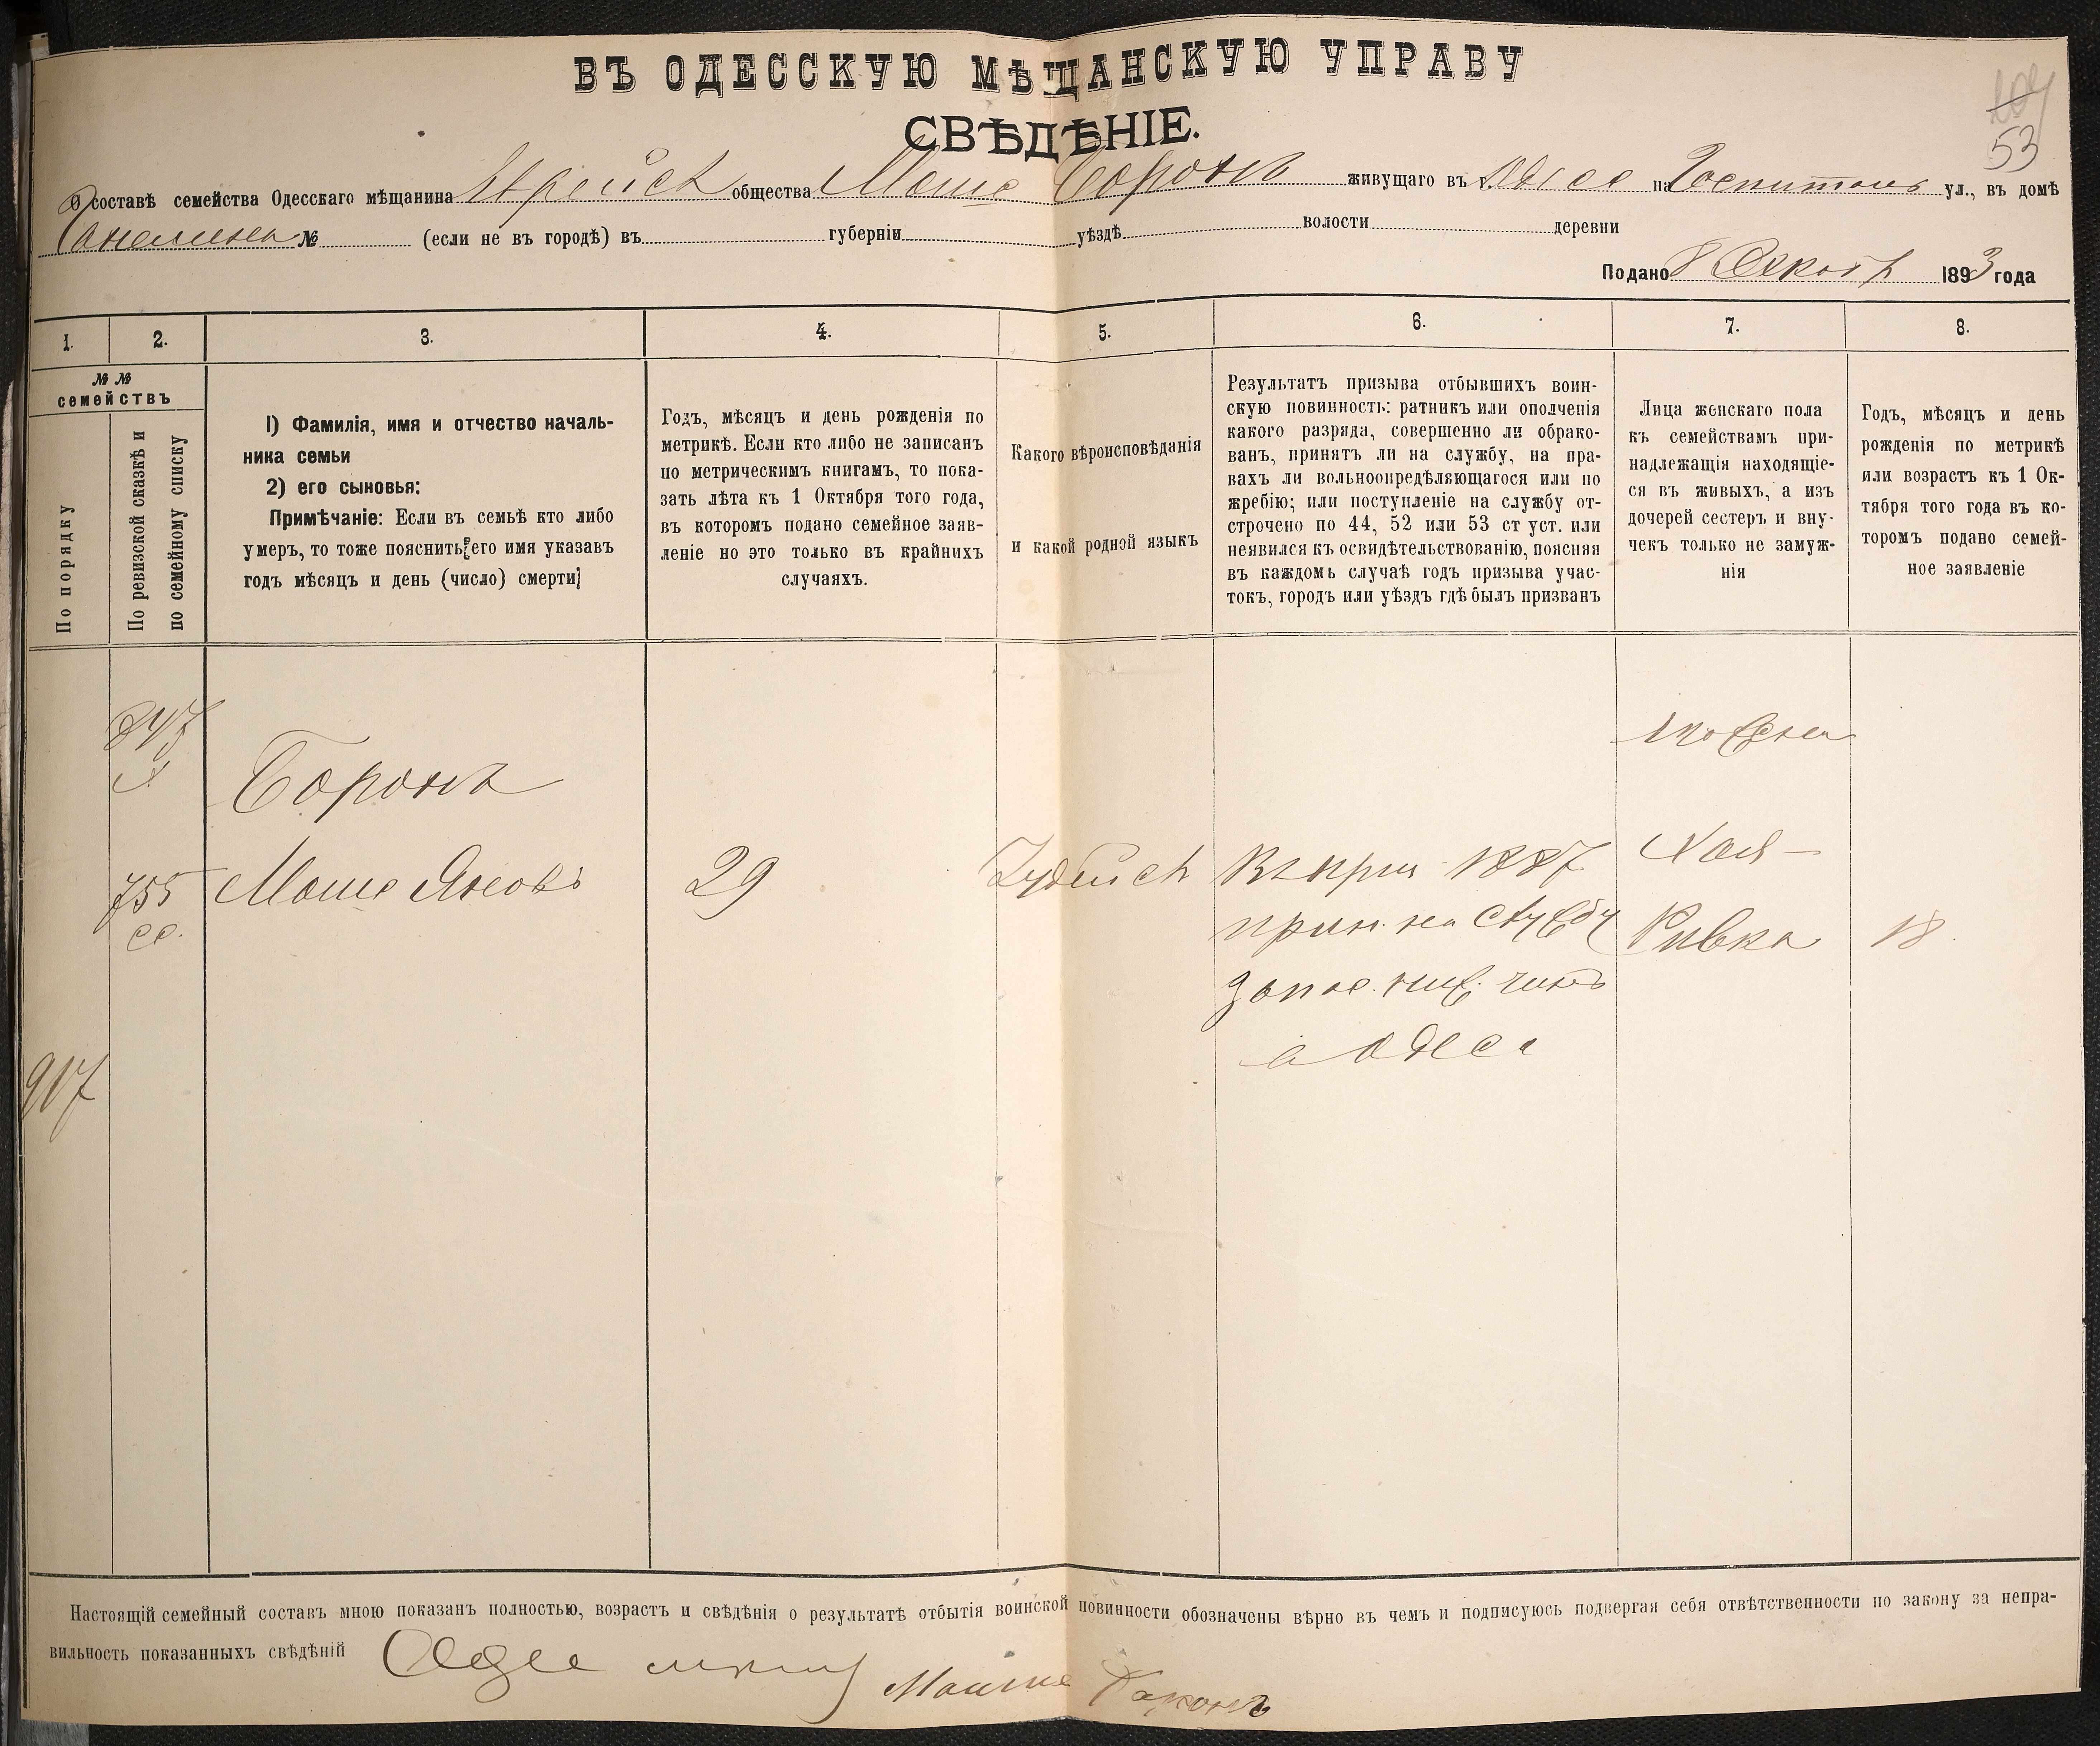 ВЪ ОДЕССКУЮ МѢЩАНСКУЮ УПРАВУ
СВѢДѢНІЕ.
53
О составѣ семейства Одесскаго мѣщанина Еврейск общества Мошко Боронъ живущаго въ г. Одессе на Госпитал ул., въ домѣ
№ (если не въ городѣ) въ губерніи уѣздѣ волости деревни
Подано 8 1893 года
1. 2. 3. 4. 5. 6. 7. 8.
№ № семействъ
По порядку
По ревизской сказкѣ и
по семейному списку
1) Фамилія, имя и отчество началь-
ника семьи
2) его сыновья:
Примѣчаніе: Если въ семьѣ кто либо
умеръ, то тоже пояснить его имя указавъ
годъ мѣсяцъ и день (число) смерти;
Годъ, мѣсяцъ и день рожденія по
метрикѣ. Если кто либо не записанъ
по метрическимъ книгамъ, то пока-
зать лѣта къ 1 Октября того года,
въ которомъ подано семейное заяв-
леніе но это только въ крайнихъ
случаяхъ.
Какого вѣроисповѣданія
и какой родной языкъ
Результатъ призыва отбывшихъ воин-
скую повинность: ратникъ или ополченія
какого разряда, совершенно ли обрако-
ванъ, принятъ ли на службу, на пра-
вахъ ли вольноопредѣляющагося или по
жребію; или поступленіе на службу от-
строчено по 44, 52 или 53 ст уст. или
неявился къ освидѣтельствованію, поясняя
въ каждомъ случаѣ годъ призыва учас-
токъ, городъ или уѣздъ гдѣ былъ призванъ
Лица женскаго пола
къ семействамъ при-
надлежащія находящіе-
ся въ живыхъ, а изъ
дочерей сестеръ и вну-
чекъ только не замуж-
нія
Годъ, мѣсяцъ и день
рожденія по метрикѣ
или возрастъ къ 1 Ок-
тября того года въ ко-
торомъ подано семей-
ное заявленіе
847
Боронъ
755
Мошко Янков
29
Іудейск
В 1887
прин. на службу
запас. ниж. чинъ
Одеса
жена
Хая-
Ривка
18
907
Настоящій семейный составъ мною показанъ полностью, возрастъ и свѣдѣнія о результатѣ отбытія воинской повинности обозначены вѣрно въ чемъ и подписуюсь подвергая себя отвѣтственности по закону за непра-
вильность показанныхъ свѣдѣній
Боронъ